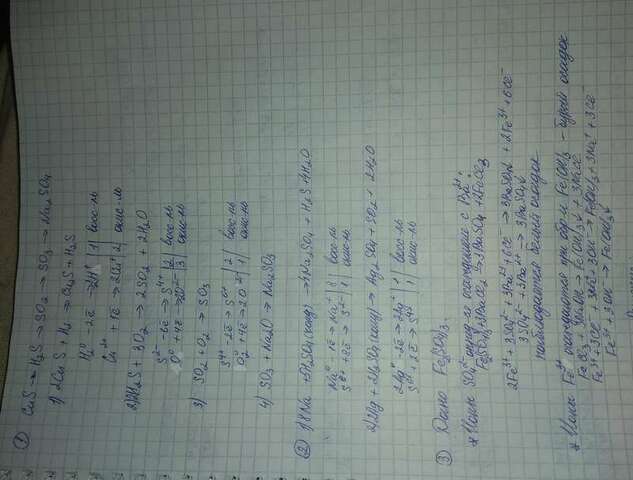 ① CuS → H₂S → SO₂ → SO₃ → Na₂SO₄
1) 2CuS + H₂ → Cu₂S + H₂S
H₂⁰ - 2ē → 2H⁺ | 1 | восс-ль
Cu²⁺ + 1ē → Cu⁺ | 2 | окис-ль
2) 2H₂S + 3O₂ → 2SO₂ + 2H₂O
S²⁻ - 6ē → S⁴⁺ | 2 | восс-ль
O₂⁰ + 4ē → 2O²⁻ | 3 | окис-ль
3) SO₂ + O₂ → SO₃
S⁴⁺ - 2ē → S⁶⁺ | 2 | восс-ль
O₂⁰ + 4ē → 2O²⁻ | 1 | окис-ль
4) SO₃ + Na₂O → Na₂SO₄
② 1) 8Na + 5H₂SO₄(конц) → 4Na₂SO₄ + H₂S + 4H₂O
Na⁰ - 1ē → Na⁺ | 8 | восс-ль
S⁶⁺ + 8ē → S²⁻ | 1 | окис-ль
2) 2Ag + 2H₂SO₄(конц) → Ag₂SO₄ + SO₂ + 2H₂O
2Ag⁰ - 2ē → 2Ag⁺ | 1 | восс-ль
S⁶⁺ + 2ē → S⁴⁺ | 1 | окис-ль
③ Дано Fe₂(SO₄)₃.
* Ионы SO₄²⁻ с Ba²⁺:
Fe₂(SO₄)₃ + 3BaCl₂ → 3BaSO₄↓ + 2FeCl₃
2Fe³⁺ + 3SO₄²⁻ + 3Ba²⁺ + 6Cl⁻ → 3BaSO₄↓ + 2Fe³⁺ + 6Cl⁻
3SO₄²⁻ + 3Ba²⁺ → 3BaSO₄↓
наблюдается белый осадок
* Ионы Fe³⁺ при обр-и Fe(OH)₃ - бурый осадок
FeCl₃ + 3NaOH → Fe(OH)₃↓ + 3NaCl
Fe³⁺ + 3Cl⁻ + 3Na⁺ + 3OH⁻ → Fe(OH)₃↓ + 3Na⁺ + 3Cl⁻
Fe³⁺ + 3OH⁻ → Fe(OH)₃↓